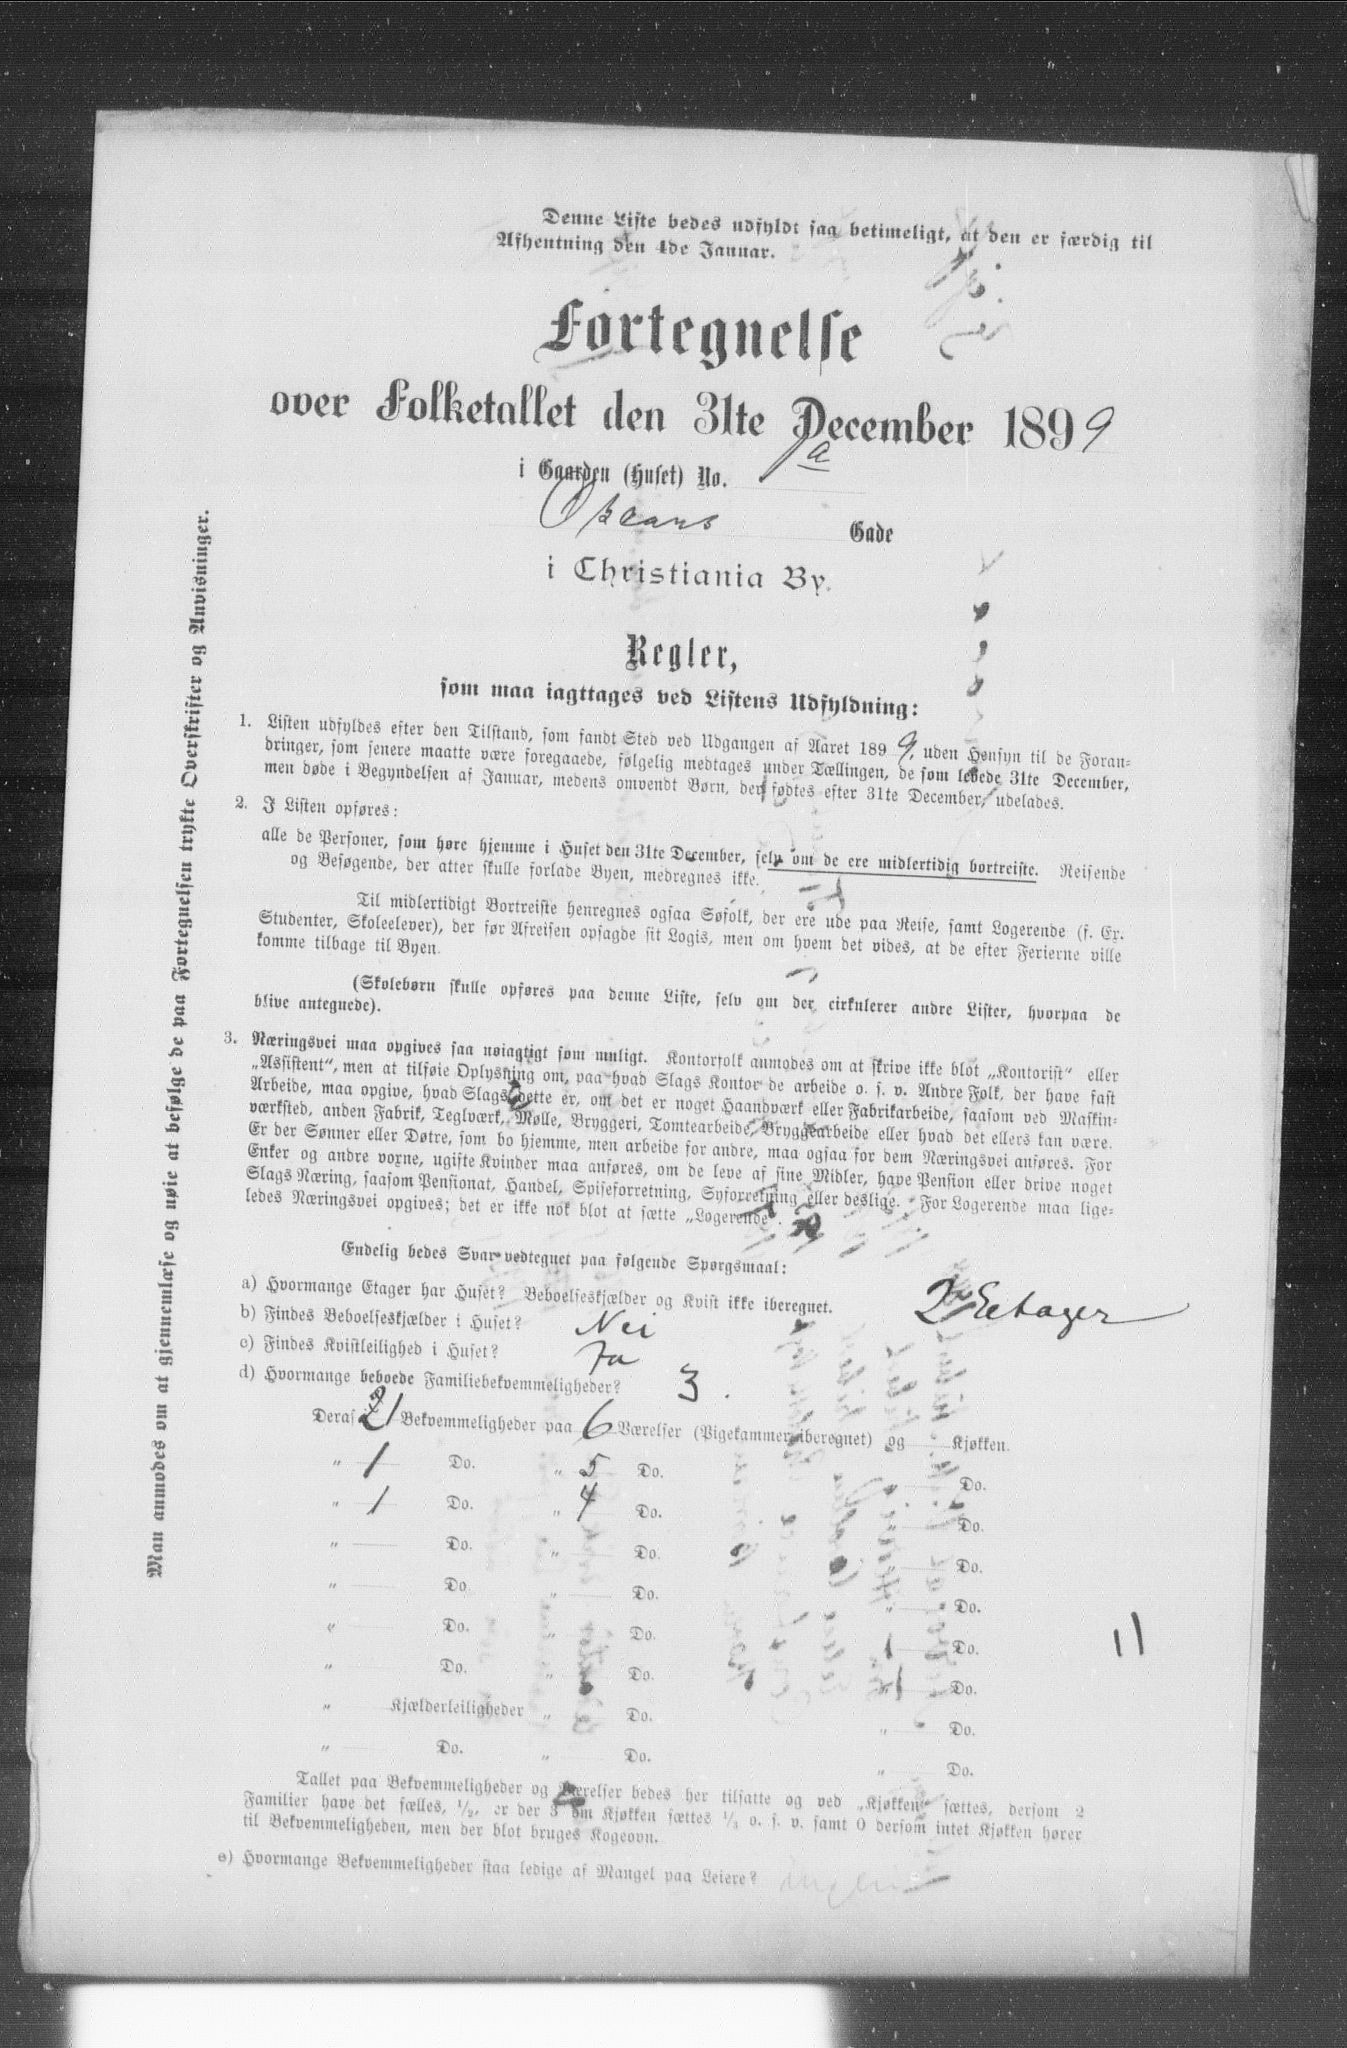 Denne Liste bedes udfyldt saa betimeligt, at den er færdig til
Afhentning den 4de Januar.
Fortegnelse
over Folketallet den 31te December 1899
i Gaarden (Huset) No. 1a
Oscars Gade
i Christiania By.
Regler,
som maa iagttages ved Listens Udfyldning:
1. Listen udfyldes efter den Tilstand, som fandt Sted ved Udgangen af Aaret 1899, uden Hensyn til de Foran-
dringer, som senere maatte være foregaaede, følgelig medtages under Tællingen, de som levede 31te December,
men døde i Begyndelsen af Januar, medens omvendt Børn, der fødtes efter 31te December, udelades.
2. I Listen opføres:
alle de Personer, som høre hjemme i Huset den 31te December, selv om de ere midlertidig bortreiste. Reisende
og Besøgende, der atter skulle forlade Byen, medregnes ikke.
Til midlertidigt Bortreiste henregnes ogsaa Søfolk, der ere ude paa Reise, samt Logerende (f. Ex.
Studenter, Skoleelever), der før Afreisen opsagde sit Logis, men om hvem det vides, at de efter Ferierne ville
komme tilbage til Byen.
(Skolebørn skulle opføres paa denne Liste, selv om der cirkulerer andre Lister, hvorpaa de
blive antegnede).
3. Næringsvei maa opgives saa nøiagtigt som muligt. Kontorfolk anmodes om at skrive ikke blot „Kontorist“ eller
„Assistent“, men at tilføie Oplysning om, paa hvad Slags Kontor de arbeide o. s. v. Andre Folk, der have fast
Arbeide, maa opgive, hvad Slags dette er, om det er noget Haandværk eller Fabrikarbeide, saasom ved Maskin-
værksted, anden Fabrik, Teglværk, Mølle, Bryggeri, Tomtearbeide, Bryggearbeide eller hvad det ellers kan være.
Er der Sønner eller Døtre, som bo hjemme, men arbeide for andre, maa ogsaa for dem Næringsvei anføres. For
Enker og andre voxne, ugifte Kvinder maa anføres, om de leve af sine Midler, have Pension eller drive noget
Slags Næring, saasom Pensionat, Handel, Spiseforretning, Syforretning eller deslige. For Logerende maa lige-
ledes Næringsvei opgives; det er ikke nok blot at sætte „Logerende“.
Endelig bedes Svar vedtegnet paa følgende Spørgsmaal:
a) Hvormange Etager har Huset? Beboelseskjælder og Kvist ikke iberegnet. 2 Eetager
b) Findes Beboelseskjælder i Huset? Nei
c) Findes Kvistleilighed i Huset? Ja
d) Hvormange beboede Familiebekvemmeligheder? 3.
Deraf 1 Bekvemmeligheder paa 6 Værelser (Pigekammer iberegnet) og Kjøkken.
„ 1 Do. „ 5 Do. Do.
„ 1 Do. „ 4 Do. Do.
„ Do. „ Do. „ Do.
„ Do. „ Do. „ Do.
„ Do. „ Do. „ Do.
„ Do. „ Do. „ Do.
„ Kjælderleiligheder „ Do. „ Do.
„ Do. „ Do. „ Do.
11
Tallet paa Bekvemmeligheder og Værelser bedes her tilsatte og ved „Kjøkken“ sættes, dersom 2
Familier have det fælles, 1/2, er der 3 om Kjøkken sættes 1/3 o. s. v. samt 0 dersom intet Kjøkken hører
til Bekvemmeligheden, men der blot bruges Kogeovn.
e) Hvormange Bekvemmeligheder staa ledige af Mangel paa Leiere? ingen
Man anmodes om at gjennemlæse og nøie at befølge de paa Fortegnelsen trykte Overskrifter og Anvisninger.